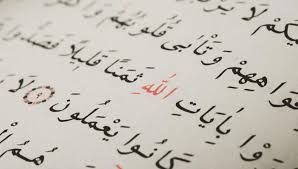 يْكُمْ لَا يَرْ
وَاهِهِمْ وَتَأْبَى قُلُوبُهُمْ وَأَكْ
رَوْا بِآيَاتِ اللهِ ثَمَنًا قَلِيلًا فَصَدُّوا
كَانُوا يَعْمَلُونَ ۝ لَا
هُمُ الْ